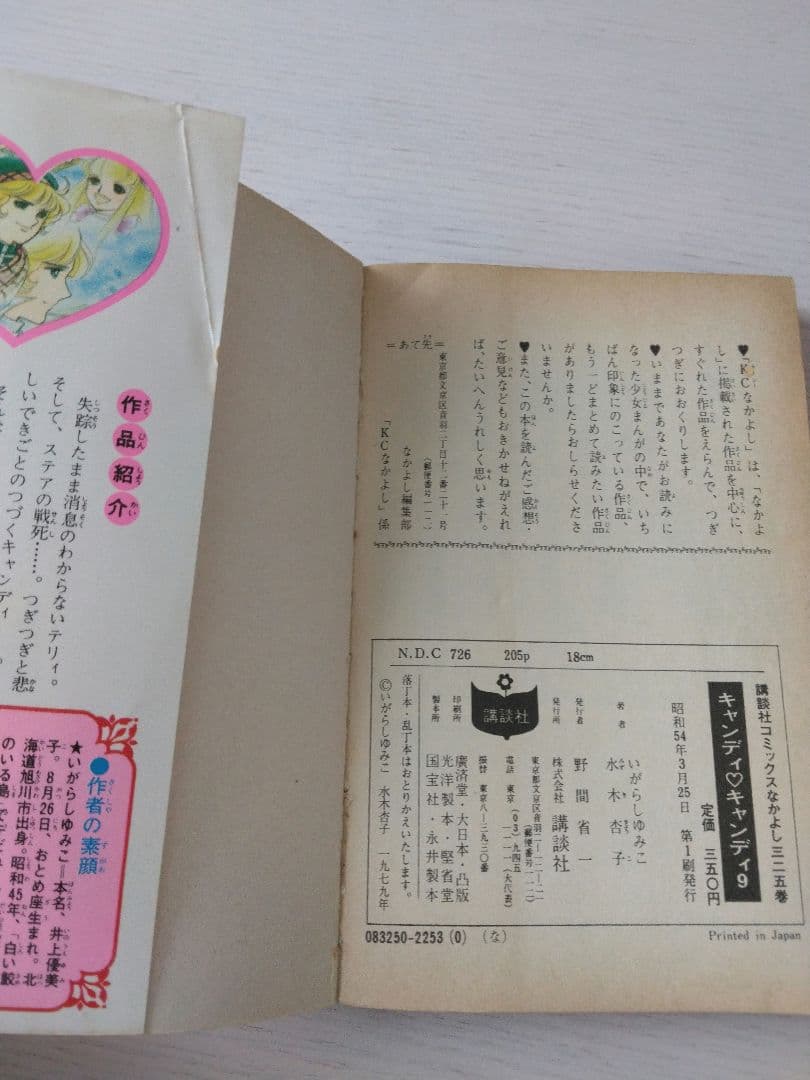 作品紹介
失踪したまま消息のわからないテリィ。
そして、ステアの戦死……。つぎつぎと悲
しいできごとのつづくキャンディ
●作者の素顔
★いがらしゆみこ＝本名、井上優美
子。8月26日、おとめ座生まれ。北
海道旭川市出身。昭和45年、「白い鮫
のいる島」で
♥「KCなかよし」は、「なかよ
し」に掲載された作品を中心に、
すぐれた作品をえらんで、つぎ
つぎにおおくりします。
♥いままであなたがお読みに
なった少女まんがの中で、いち
ばん印象にのこっている作品、
もう一どまとめて読みたい作品
がありましたらおしらせくださ
いませんか。
♥また、この本を読んだご感想・
ご意見などもおきかせねがえれ
ば、たいへんうれしく思います。
＝あて先＝
東京都文京区音羽二丁目十二番二十一号
（郵便番号一一二）
なかよし編集部
「KCなかよし」係
N.D.C 726 205p 18cm
講談社コミックスなかよし 三二五巻
キャンディ♡キャンディ9
定価 三五〇円
昭和54年3月25日 第1刷発行
著者 いがらしゆみこ
水木杏子
発行者 野間省一
発行所 株式会社 講談社
東京都文京区音羽二ー一二ー二一
（郵便番号一一二）
電話 東京（03）九四五ー一一一一（大代表）
振替 東京八ー三九三〇番
講談社
印刷所 廣済堂・大日本・凸版
製本所 光洋製本・堅省堂
国宝社・永井製本
落丁本・乱丁本はおとりかえいたします。
©いがらしゆみこ 水木杏子 一九七九年
083250-2253(0) (な)
Printed in Japan